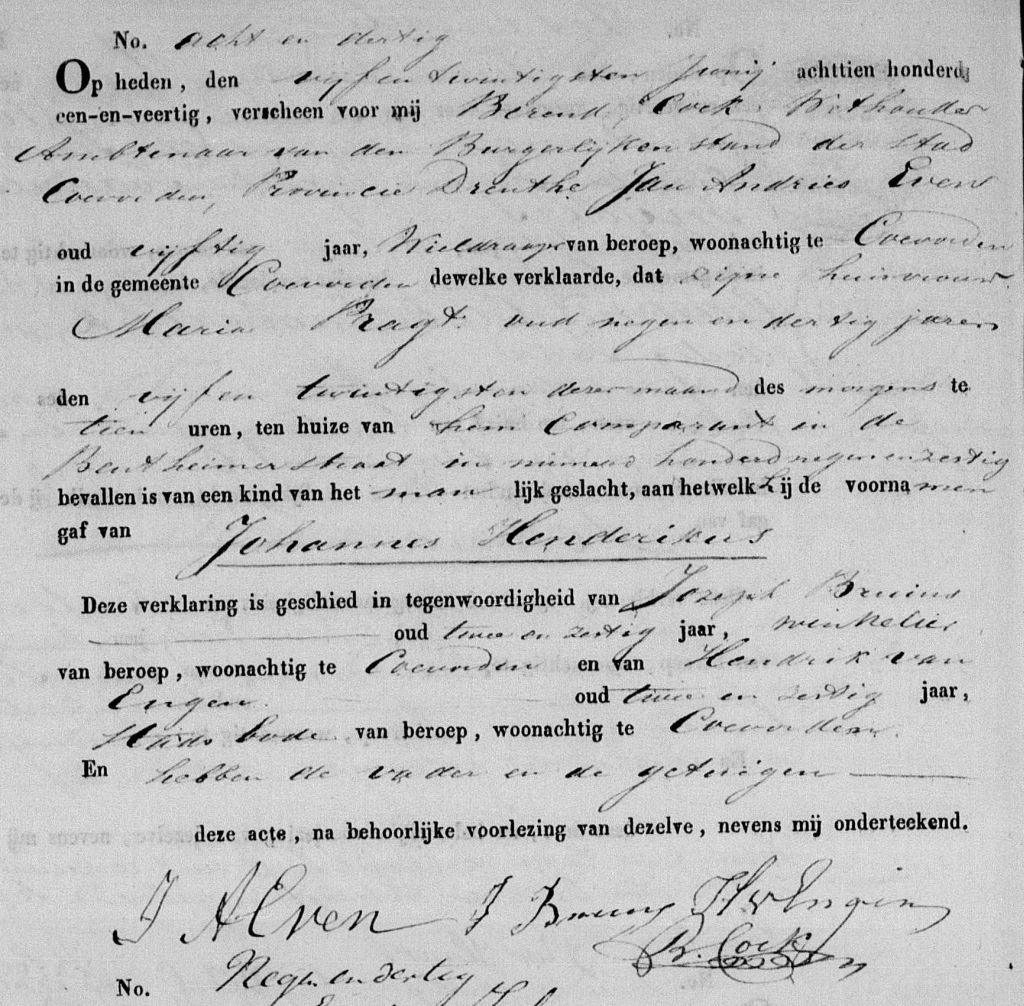 No. acht en dertig
Op heden, den vijf en twintigsten Junij achttien honderd
een-en-veertig, verscheen voor mij Berend Cock Wethouder
Ambtenaar van den Burgerlijken stand der stad
Coevorden, Provincie Drenthe Jan Andries Even
oud vijftig jaar, van beroep, woonachtig te Coevorden
in de gemeente Coevorden dewelke verklaarde, dat zijne huisvrouw
Maria Pragt oud negen en dertig jaren
den vijf en twintigsten dezer maand des morgens te
tien uren, ten huize van hem Comparant in de
Bentheimerstraat in numero honderd negen en zestig
bevallen is van een kind van het man lijk geslacht, aan hetwelk Zij de voornamen
gaf van Johannes Henderikus
Deze verklaring is geschied in tegenwoordigheid van Jozeph Bruins
oud twee en zestig jaar, winkelier
van beroep, woonachtig te Coevorden en van Hendrik van
Engen oud twee en zestig jaar,
Stads bode van beroep, woonachtig te Coevorden.
En hebben de vader en de getuigen
deze acte, na behoorlijke voorlezing van dezelve, nevens mij onderteekend.
J A Even J Bruins H v Engen
B. Cock
No. Negen en dertig